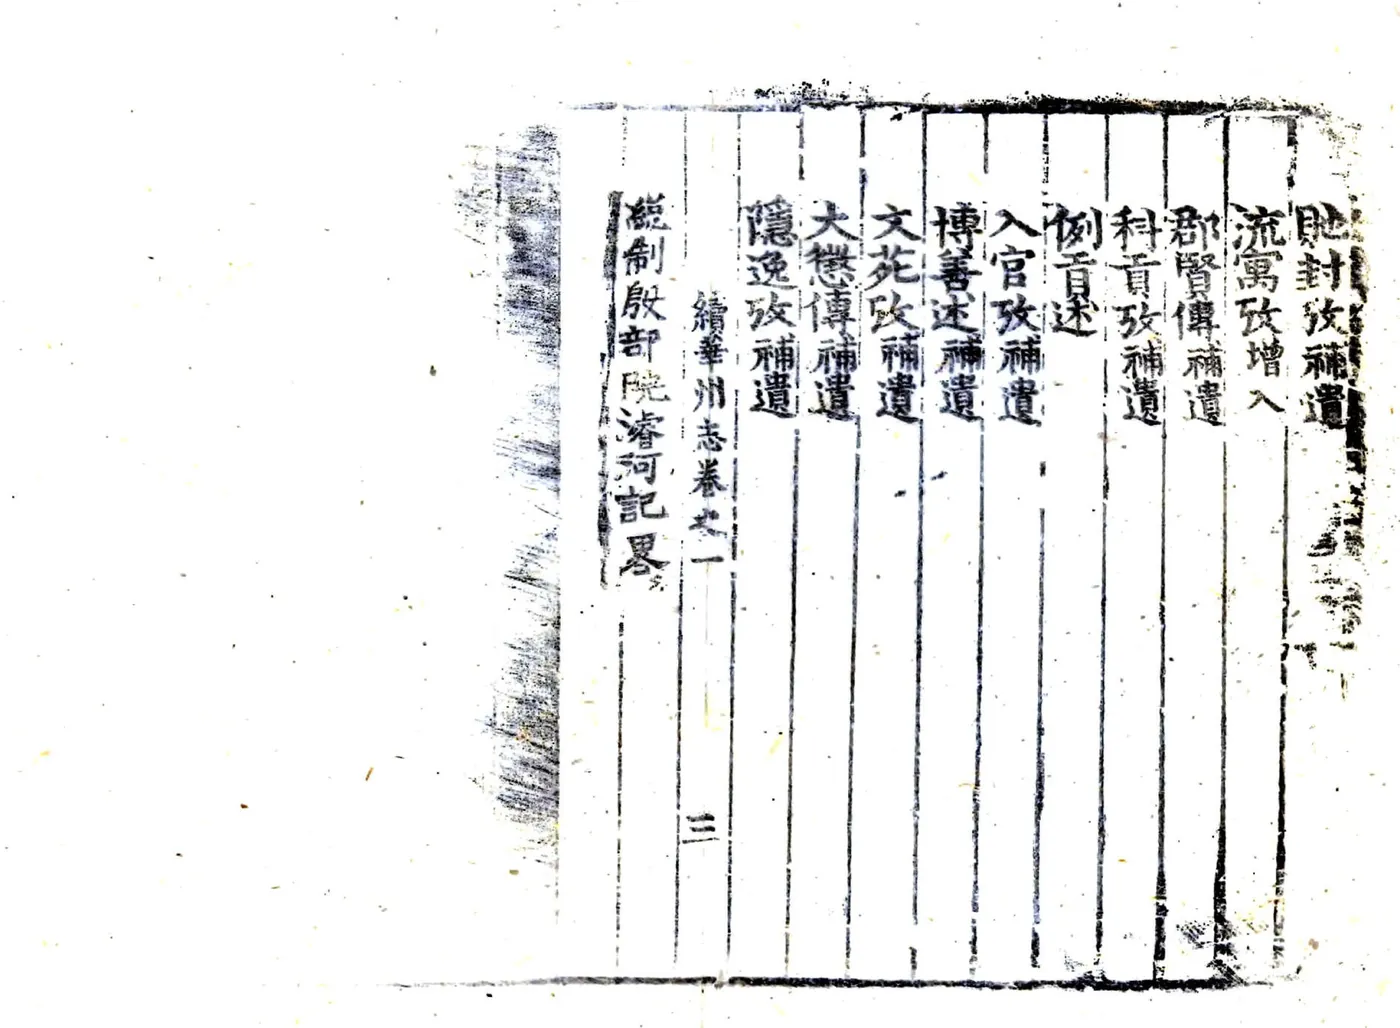 貤封攷補遺
流寓攷增入
郡賢傳補遺
科貢攷補遺
例貢述
入官攷補遺
博善述補遺
文苑攷補遺
大懲傳補遺
隱逸攷補遺
續華州志卷之一
三
制殷部院濬河記畧